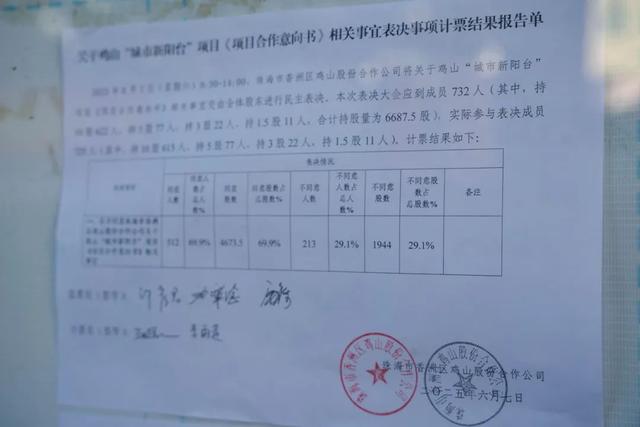 关于鸡山“城市新阳台”项目《项目合作意向书》相关事宜表决事项计票结果报告单
2025年6月7日(星期六)8:30-14:00,珠海市香洲区鸡山股份合作公司将关于鸡山“城市新阳台”
相关事宜交由全体股东进行民主表决。本次表决大会应到成员732人(其中,持
10股622人、持5股77人、持3股22人、持1.5股11人,合计持股量为6687.5股),实际参与表决成员
725人(其中,持10股615人,持5股77人、持3股22人、持1.5股11人)。计票结果如下:
表决情况
同意人数 同意人数占总人数% 同意股数 同意股数占总股数% 不同意人数 不同意人数占总人数% 不同意股数 不同意股数占总股数% 备注
512 69.9% 4673.5 69.9% 213 29.1% 1944 29.1%
监票员(签字):
计票员(签字):
珠海市香洲区鸡山股份合作公司
二〇二五年六月七日